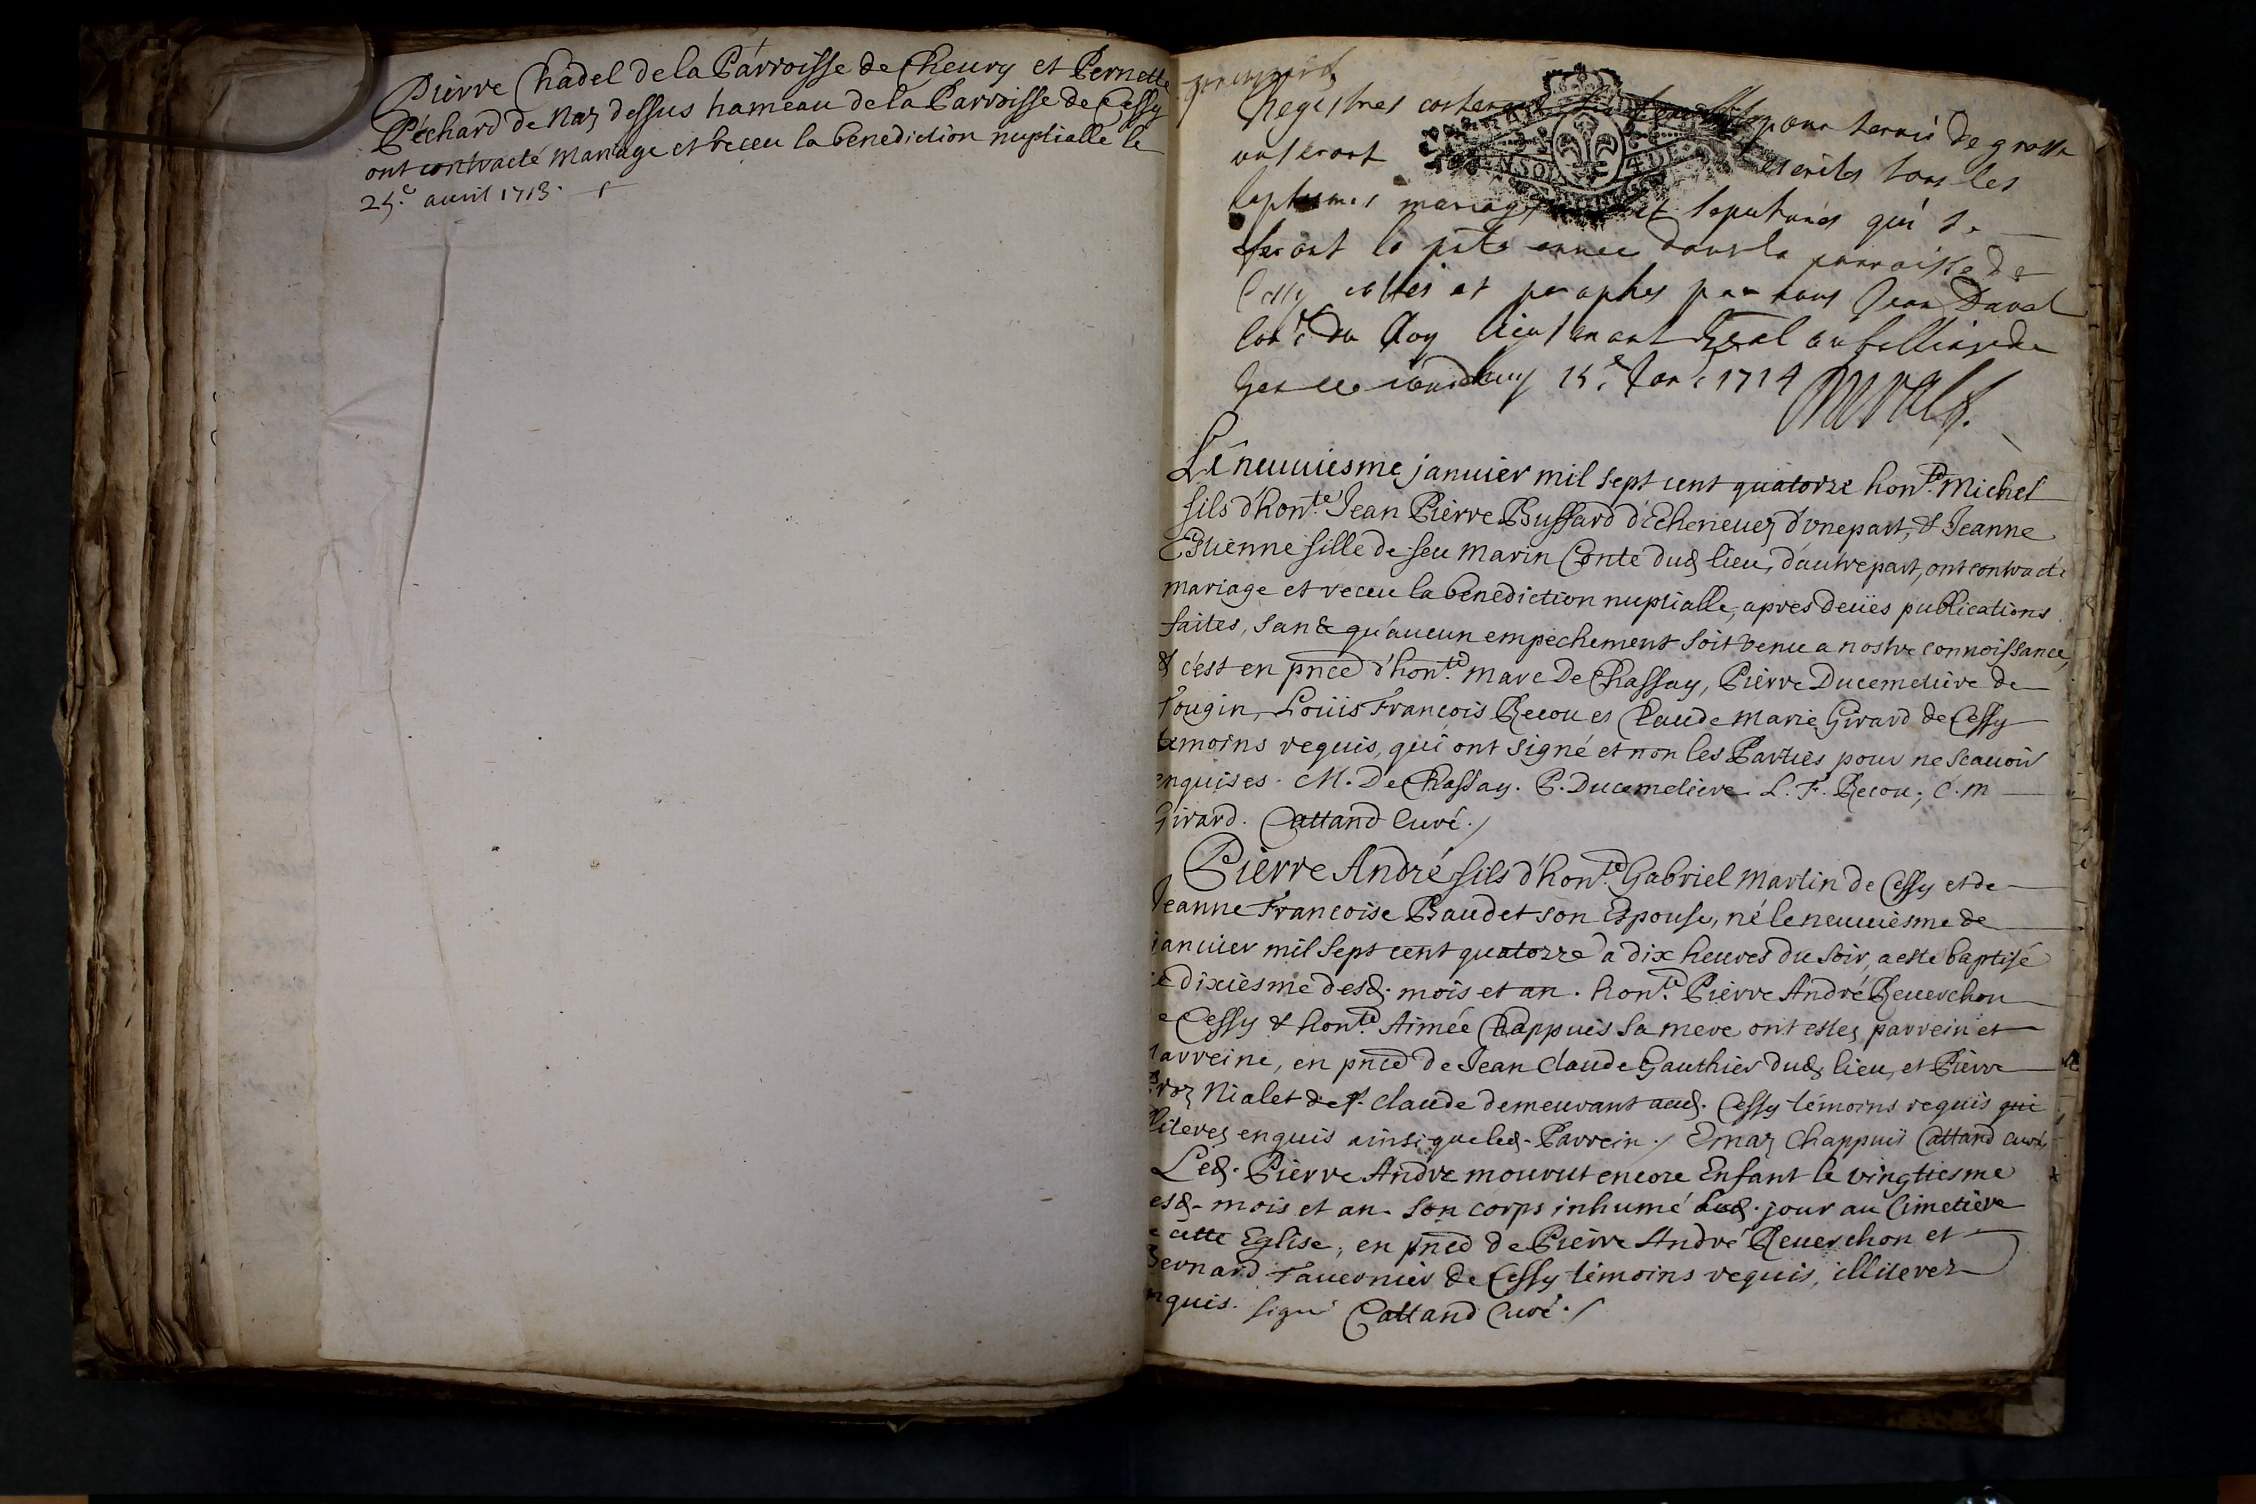 Pierre Chadel de la Parroisse de Cheury et Pernette
Péchard de Naz dessus hameau de la Parroisse de Cessy
ont contracté Mariage et receu la benediction nuptialle le
25.e auril 1713.
Registres contenant pour seruir de grosse
escrits tous les
baptesmes mariages et sepultures qui se
feront la pnte annee dans la parroisse de
Cessy cottés et paraphés par nous Jean Duval
Con.er du Roy lieutenant gnal au balliage de
Gex ce 15.e Jan. 1714
Le neuuiesme januier mil sept cent quatorze hon.te Michel
fils d'hon.te Jean Pierre Bussard d'Echeneuez d'vne part, & Jeanne
Etienne fille de feu Marin Conte dud lieu, d'autre part, ont contracté
mariage et receu la benediction nuptialle, apres deües publications
faites, sans qu'aucun empechement soit venu a nostre connoissance,
& c'est en pnce d'hon.te Marc De Chassay, Pierre Ducemetiere de
Tougin, Loüis François Recou et Claude Marie Girard de Cessy
temoins requis, qui ont signé et non les Parties pour ne scauoir
enquises. M. De Chassay. P. Ducemetiere. L. F. Recou; C. M
Girard. Cattand Curé.
Pierre André fils d'hon.te Gabriel Martin de Cessy et de
Jeanne Francoise Baudet son Espouse, né le neuuiesme de
januier mil sept cent quatorze a dix heures du soir, a esté baptisé
le dixiesme desd. mois et an. hon.te Pierre André Reuerchon
de Cessy & hon.te Aimée Chappuis sa mere ont estez parrein et
marreine, en pnce de Jean Claude Gauthier dud lieu, et Pierre
Nialet de St. Claude demeurant aud. Cessy témoins requis
illiterez enquis ainsi que led. Parrein. Emaz Chappuis Cattand curé
Led. Pierre André mourut encore Enfant le vingtiesme
desd. mois et an. son corps inhumé led. jour au Cimetiere
de cette Eglise, en pnce de Pierre André Reuerchon et
Bernard Tauernier de Cessy témoins requis, illiterez
enquis. signé Cattand Curé.